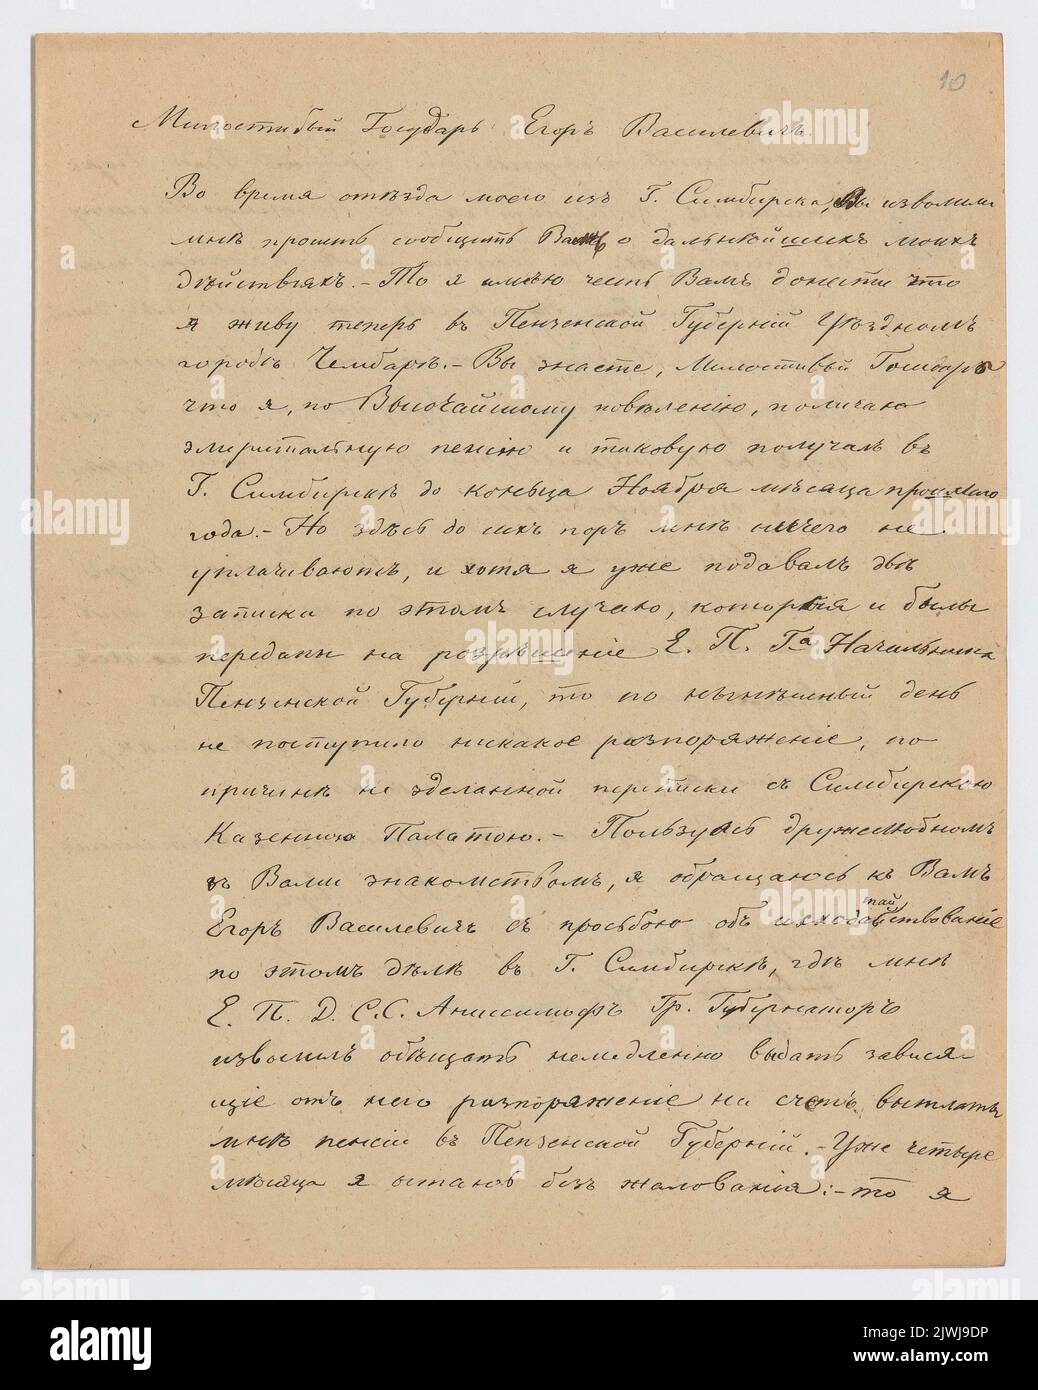 10
Милостивый Государь Егоръ Василевичъ.
Во время отъѣзда моего изъ Г. Симбирска, Вы изволили
мнѣ просить сообщить Вамъ о дальнѣйшихъ моихъ
дѣйствіяхъ. – То я имѣю честь Вамъ донести что
я живу теперь въ Пензенской Губерній Уѣздномъ
городѣ Чембарѣ. – Вы знаете, Милостивый Государь
что я, по Высочайшому повѣленію, получаю
эмеритальную пенсію и таковую получалъ въ
Г. Симбирскѣ до коньца Ноября мѣсяца прошлаго
года. – Но здѣсь до сихъ поръ мнѣ ничего не
уплачиваютъ, и хотя я уже подавалъ двѣ
записки по этомъ случаю, которыя и былы
переданы на розрѣшеніе Е. П. Га Начальника
Пензенской Губерніи, то по нынѣшный день
не поступило никакое разпоряженіе, по
причинѣ не зделанной переписки съ Симбирскою
Казенною Палатою. – Пользуясь дружелюбномъ
съ Вами знакомствомъ, я обращаюсь къ Вамъ
Егоръ Василевичъ съ просьбою объ исходатайствованіе
по этомъ дѣлѣ въ Г. Симбирскѣ, гдѣ мнѣ
Е. П. Д. С. С. Аниссимофъ Гр. Губернаторъ
изволилъ обѣщать немедленно выдать завися-
щіе отъ него разпоряженіе на счетъ выплаты
мнѣ пенсіи въ Пензенской Губерній. – Уже четыре
мѣсяца я остаюсь безъ жалованія: – то я
alamy
alamy
Image ID: 2WJ9JDP
www.alamy.com